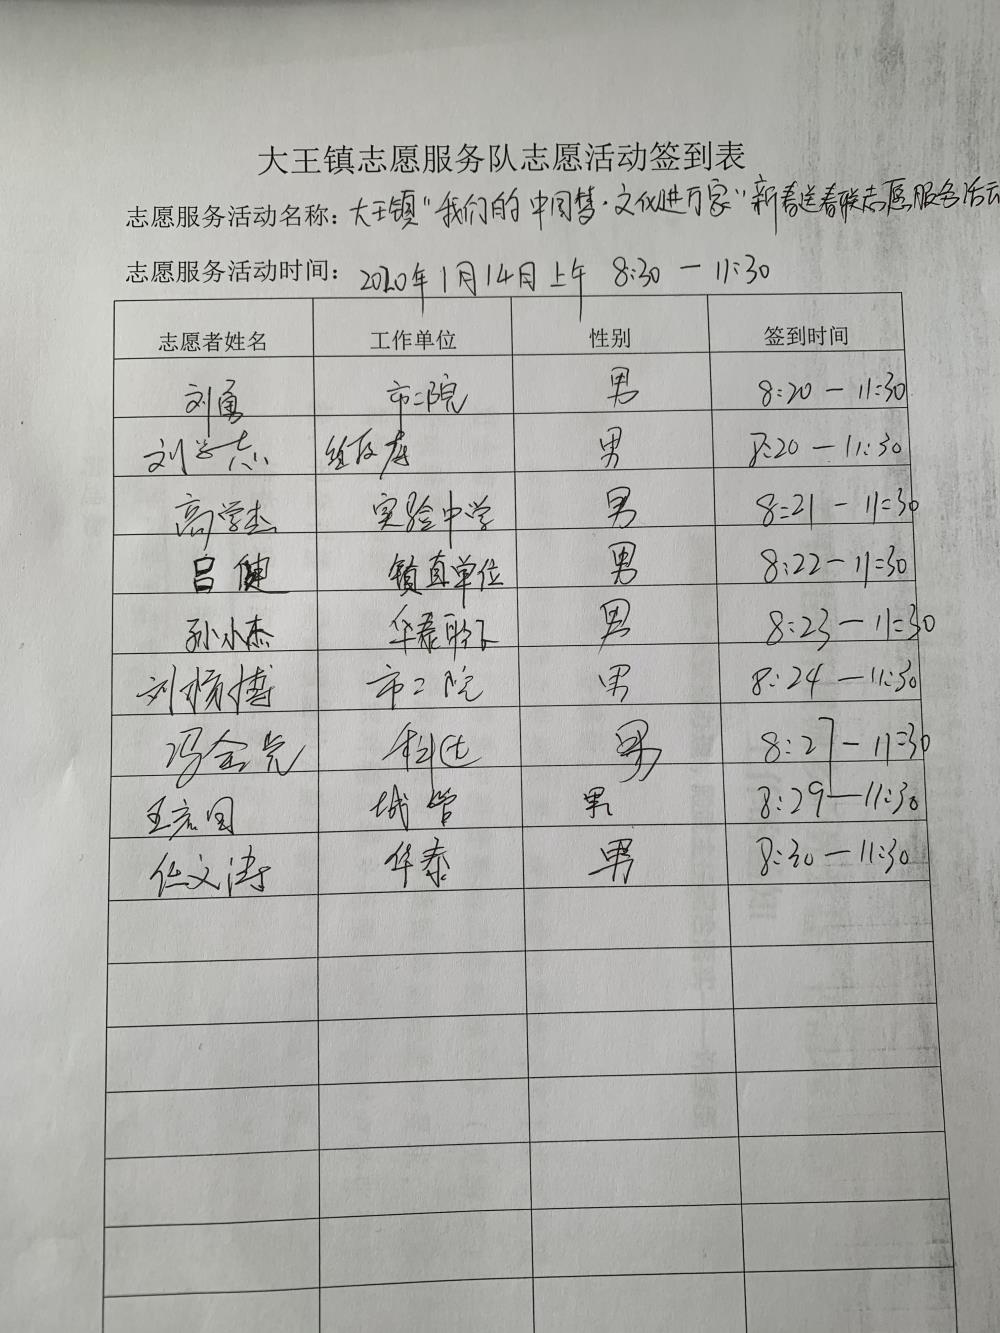 大王镇志愿服务队志愿活动签到表
志愿服务活动名称：大王镇“我们的中国梦·文化进万家”新春送春联志愿服务活动
志愿服务活动时间：2020年1月14日上午 8:30 — 11:30
志愿者姓名 工作单位 性别 签到时间
刘勇 市二院 男 8:20 — 11:30
刘学志 男 8:20 — 11:30
高学杰 实验中学 男 8:21 — 11:30
吕健 镇直单位 男 8:22 — 11:30
孙小杰 华泰 男 8:23 — 11:30
刘 博 市二院 男 8:24 — 11:30
冯金亮 科达 男 8:27 — 11:30
王 国 城管 男 8:29 — 11:30
任文涛 华泰 男 8:30 — 11:30